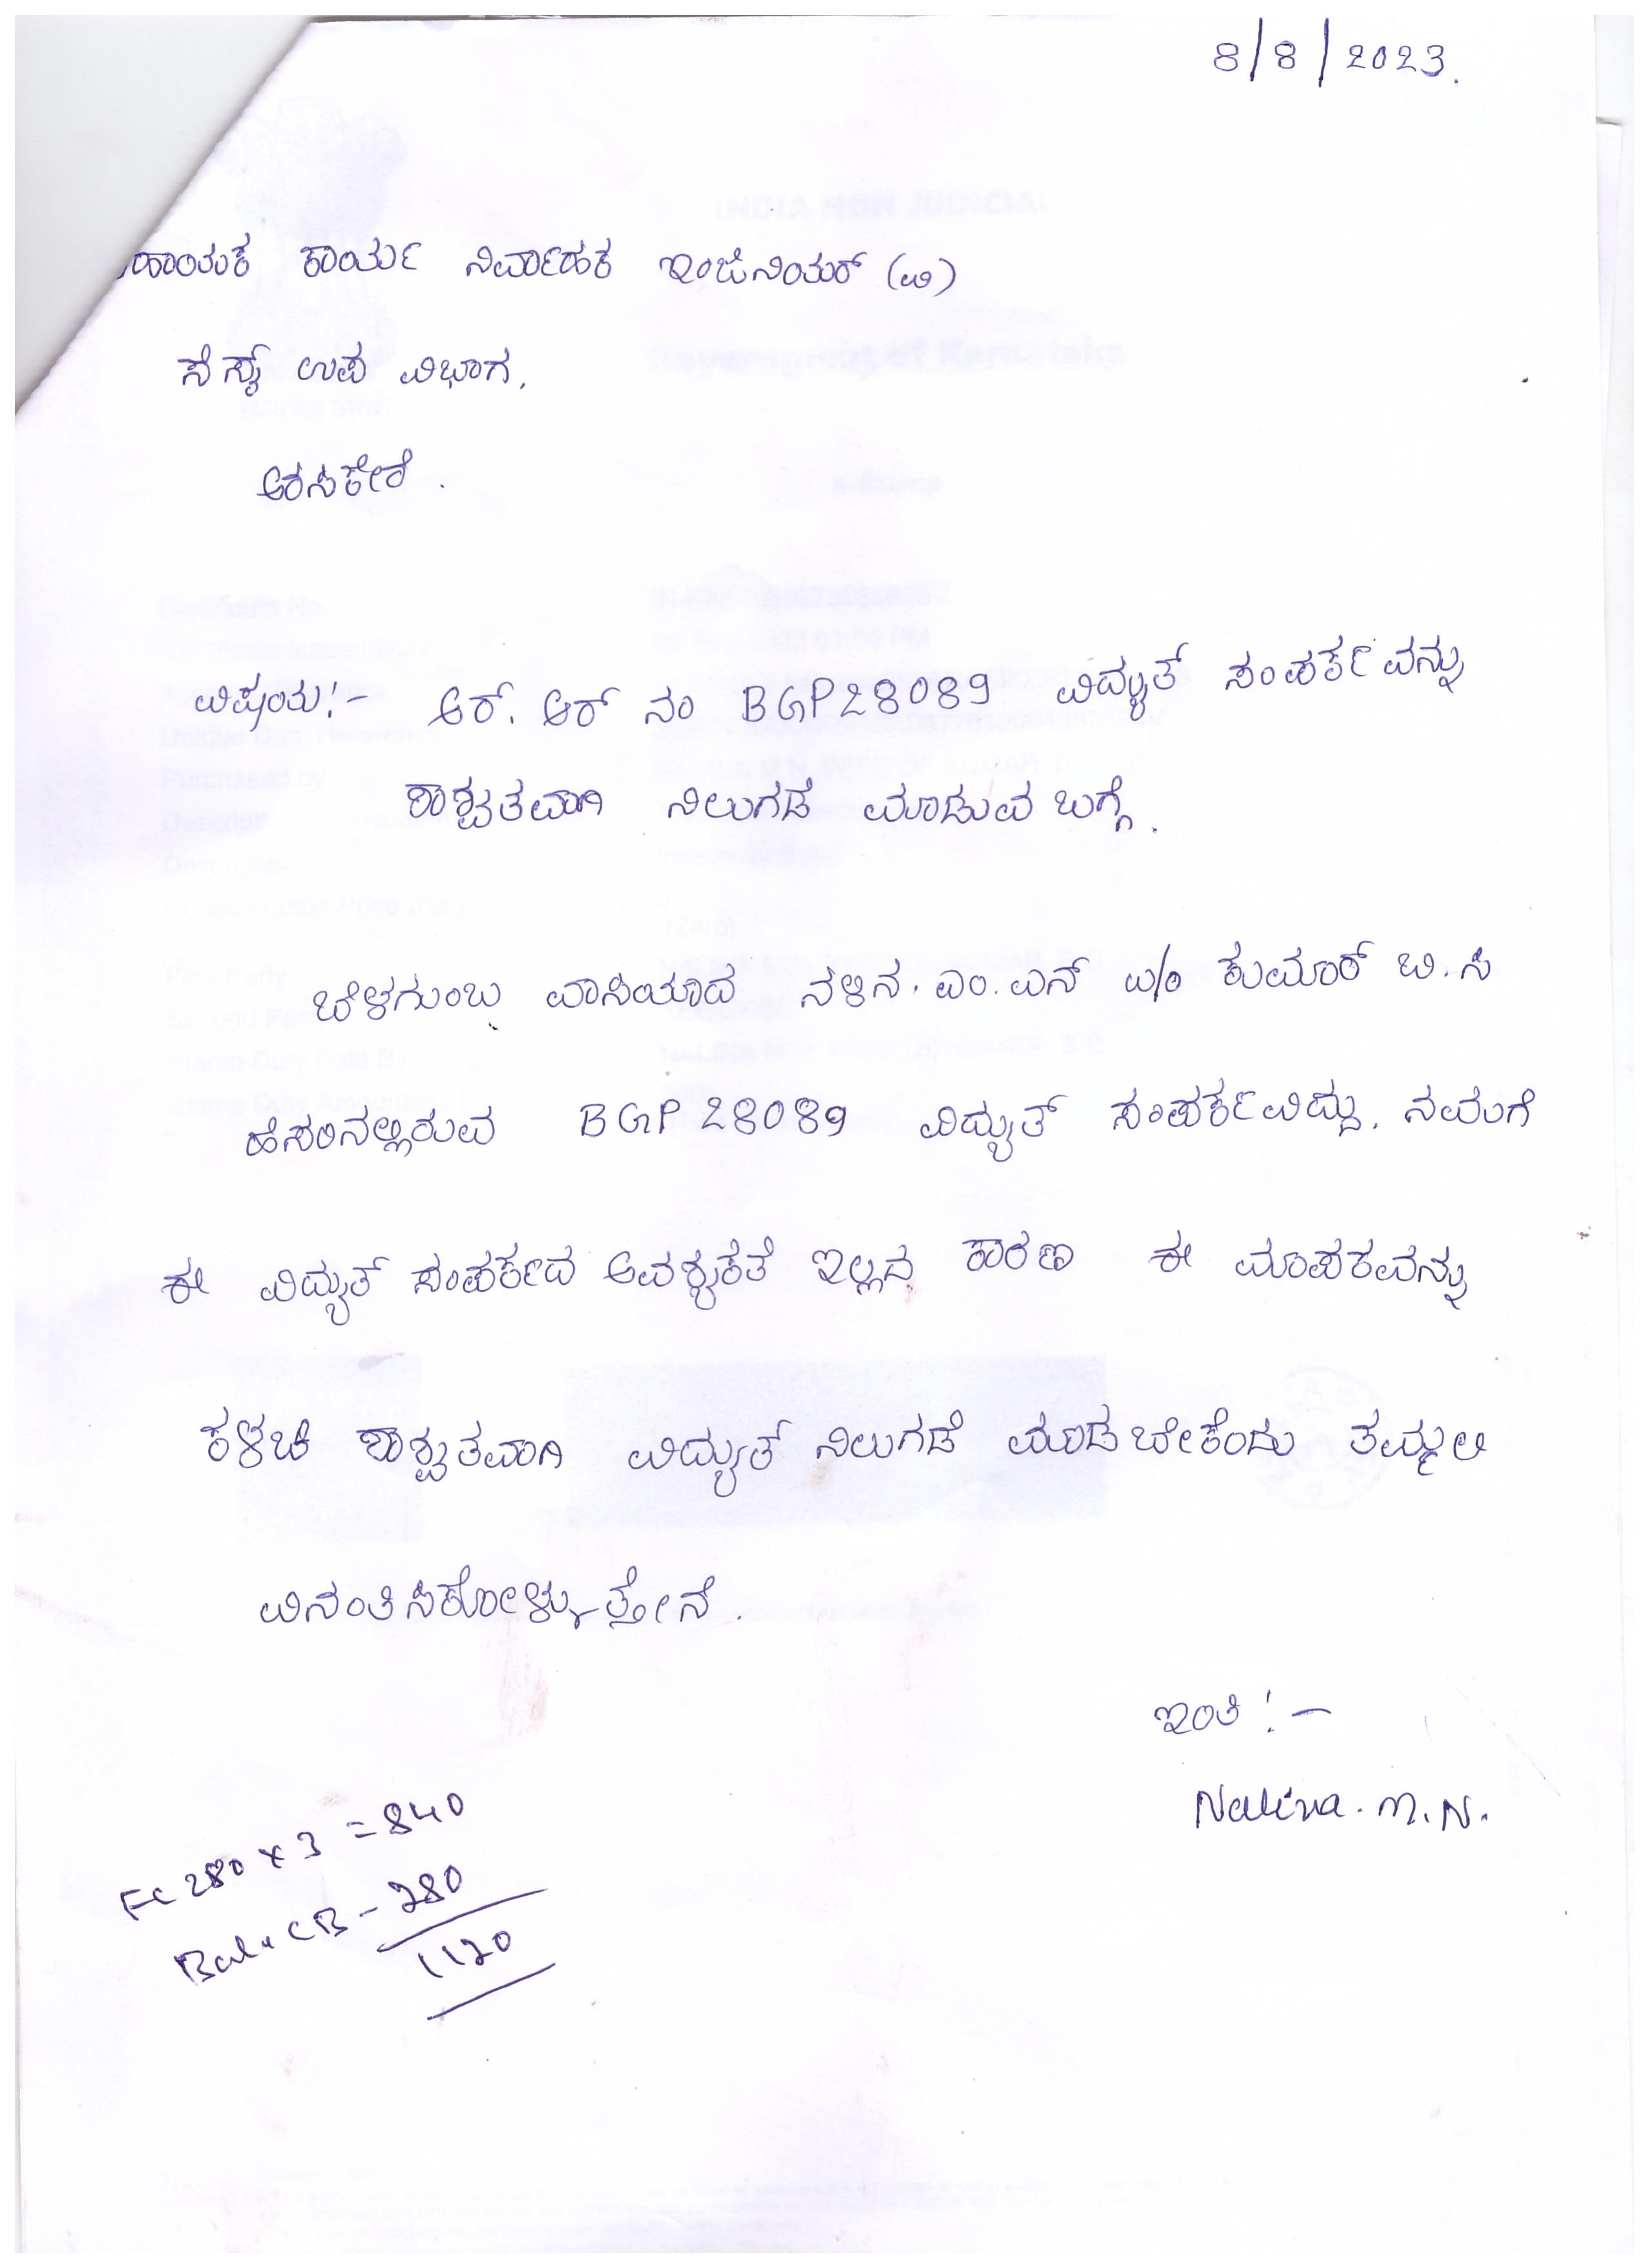 8/8/2023.
ಹಾಯಕ ಕಾರ್ಯ ನಿರ್ವಾಹಕ ಇಂಜಿನಿಯರ್ (ವಿ)
ಸೆಸ್ಕ್ ಉಪ ವಿಭಾಗ.
ಅರಸಿಕೇರೆ.
ವಿಷಯ:- ಆರ್. ಆರ್ ನಂ BGP28089 ವಿದ್ಯುತ್ ಸಂಪರ್ಕವನ್ನು
ಶಾಶ್ವತವಾಗಿ ನಿಲುಗಡೆ ಮಾಡುವ ಬಗ್ಗೆ.
ಬೆಳಗುಂಬ ವಾಸಿಯಾದ ನಳಿನ. ಎಂ. ಎನ್ w/o ಕುಮಾರ್ ಬಿ. ಸಿ
ಹೆಸರಿನಲ್ಲಿರುವ BGP 28089 ವಿದ್ಯುತ್ ಸಂಪರ್ಕವಿದ್ದು. ನಮಗೆ
ಈ ವಿದ್ಯುತ್ ಸಂಪರ್ಕದ ಅವಶ್ಯಕತೆ ಇಲ್ಲದ ಕಾರಣ ಈ ಮಾಪಕವನ್ನು
ಕಳಚಿ ಶಾಶ್ವತವಾಗಿ ವಿದ್ಯುತ್ ನಿಲುಗಡೆ ಮಾಡಬೇಕೆಂದು ತಮ್ಮಲಿ
ವಿನಂತಿಸಿಕೋಳ್ಳುತ್ತೇನೆ.
ಇಂತಿ :-
Nalina. M. N.
Fc 280 x 3 = 840
Bal. CB - 280
1120